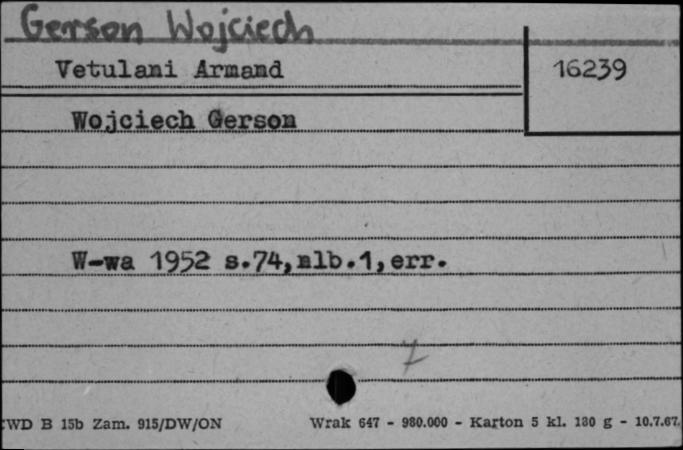 Gerson Wojciech
Vetulani Armand
16239
Wojciech Gerson
W-wa 1952 s.74,nlb.1,err.
7
CWD B 15b Zam. 915/DW/ON
Wrak 647 - 980.000 - Karton 5 kl. 180 g - 10.7.67.